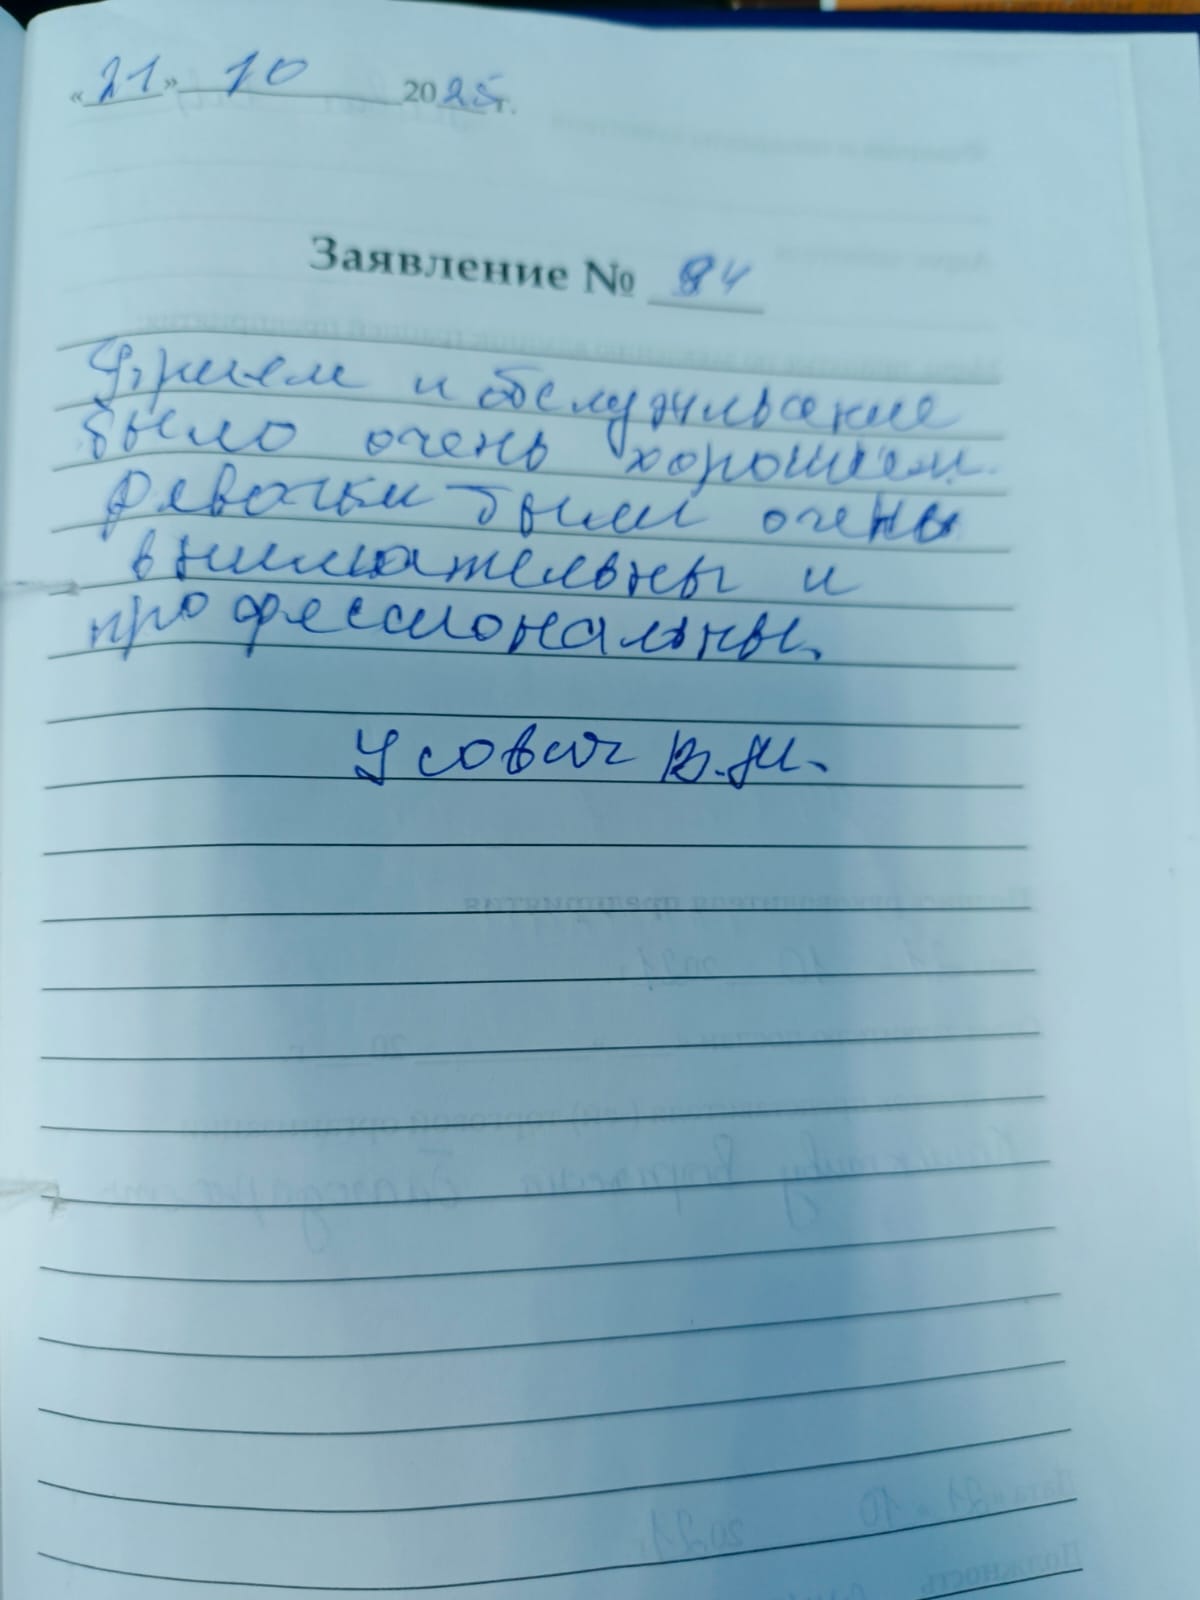 «21» 10 2025 г.
Заявление № 84
Прием и обслуживание
было очень хорошем.
Девочки были очень
внимательны и
профессиональны.
Усович В.М.